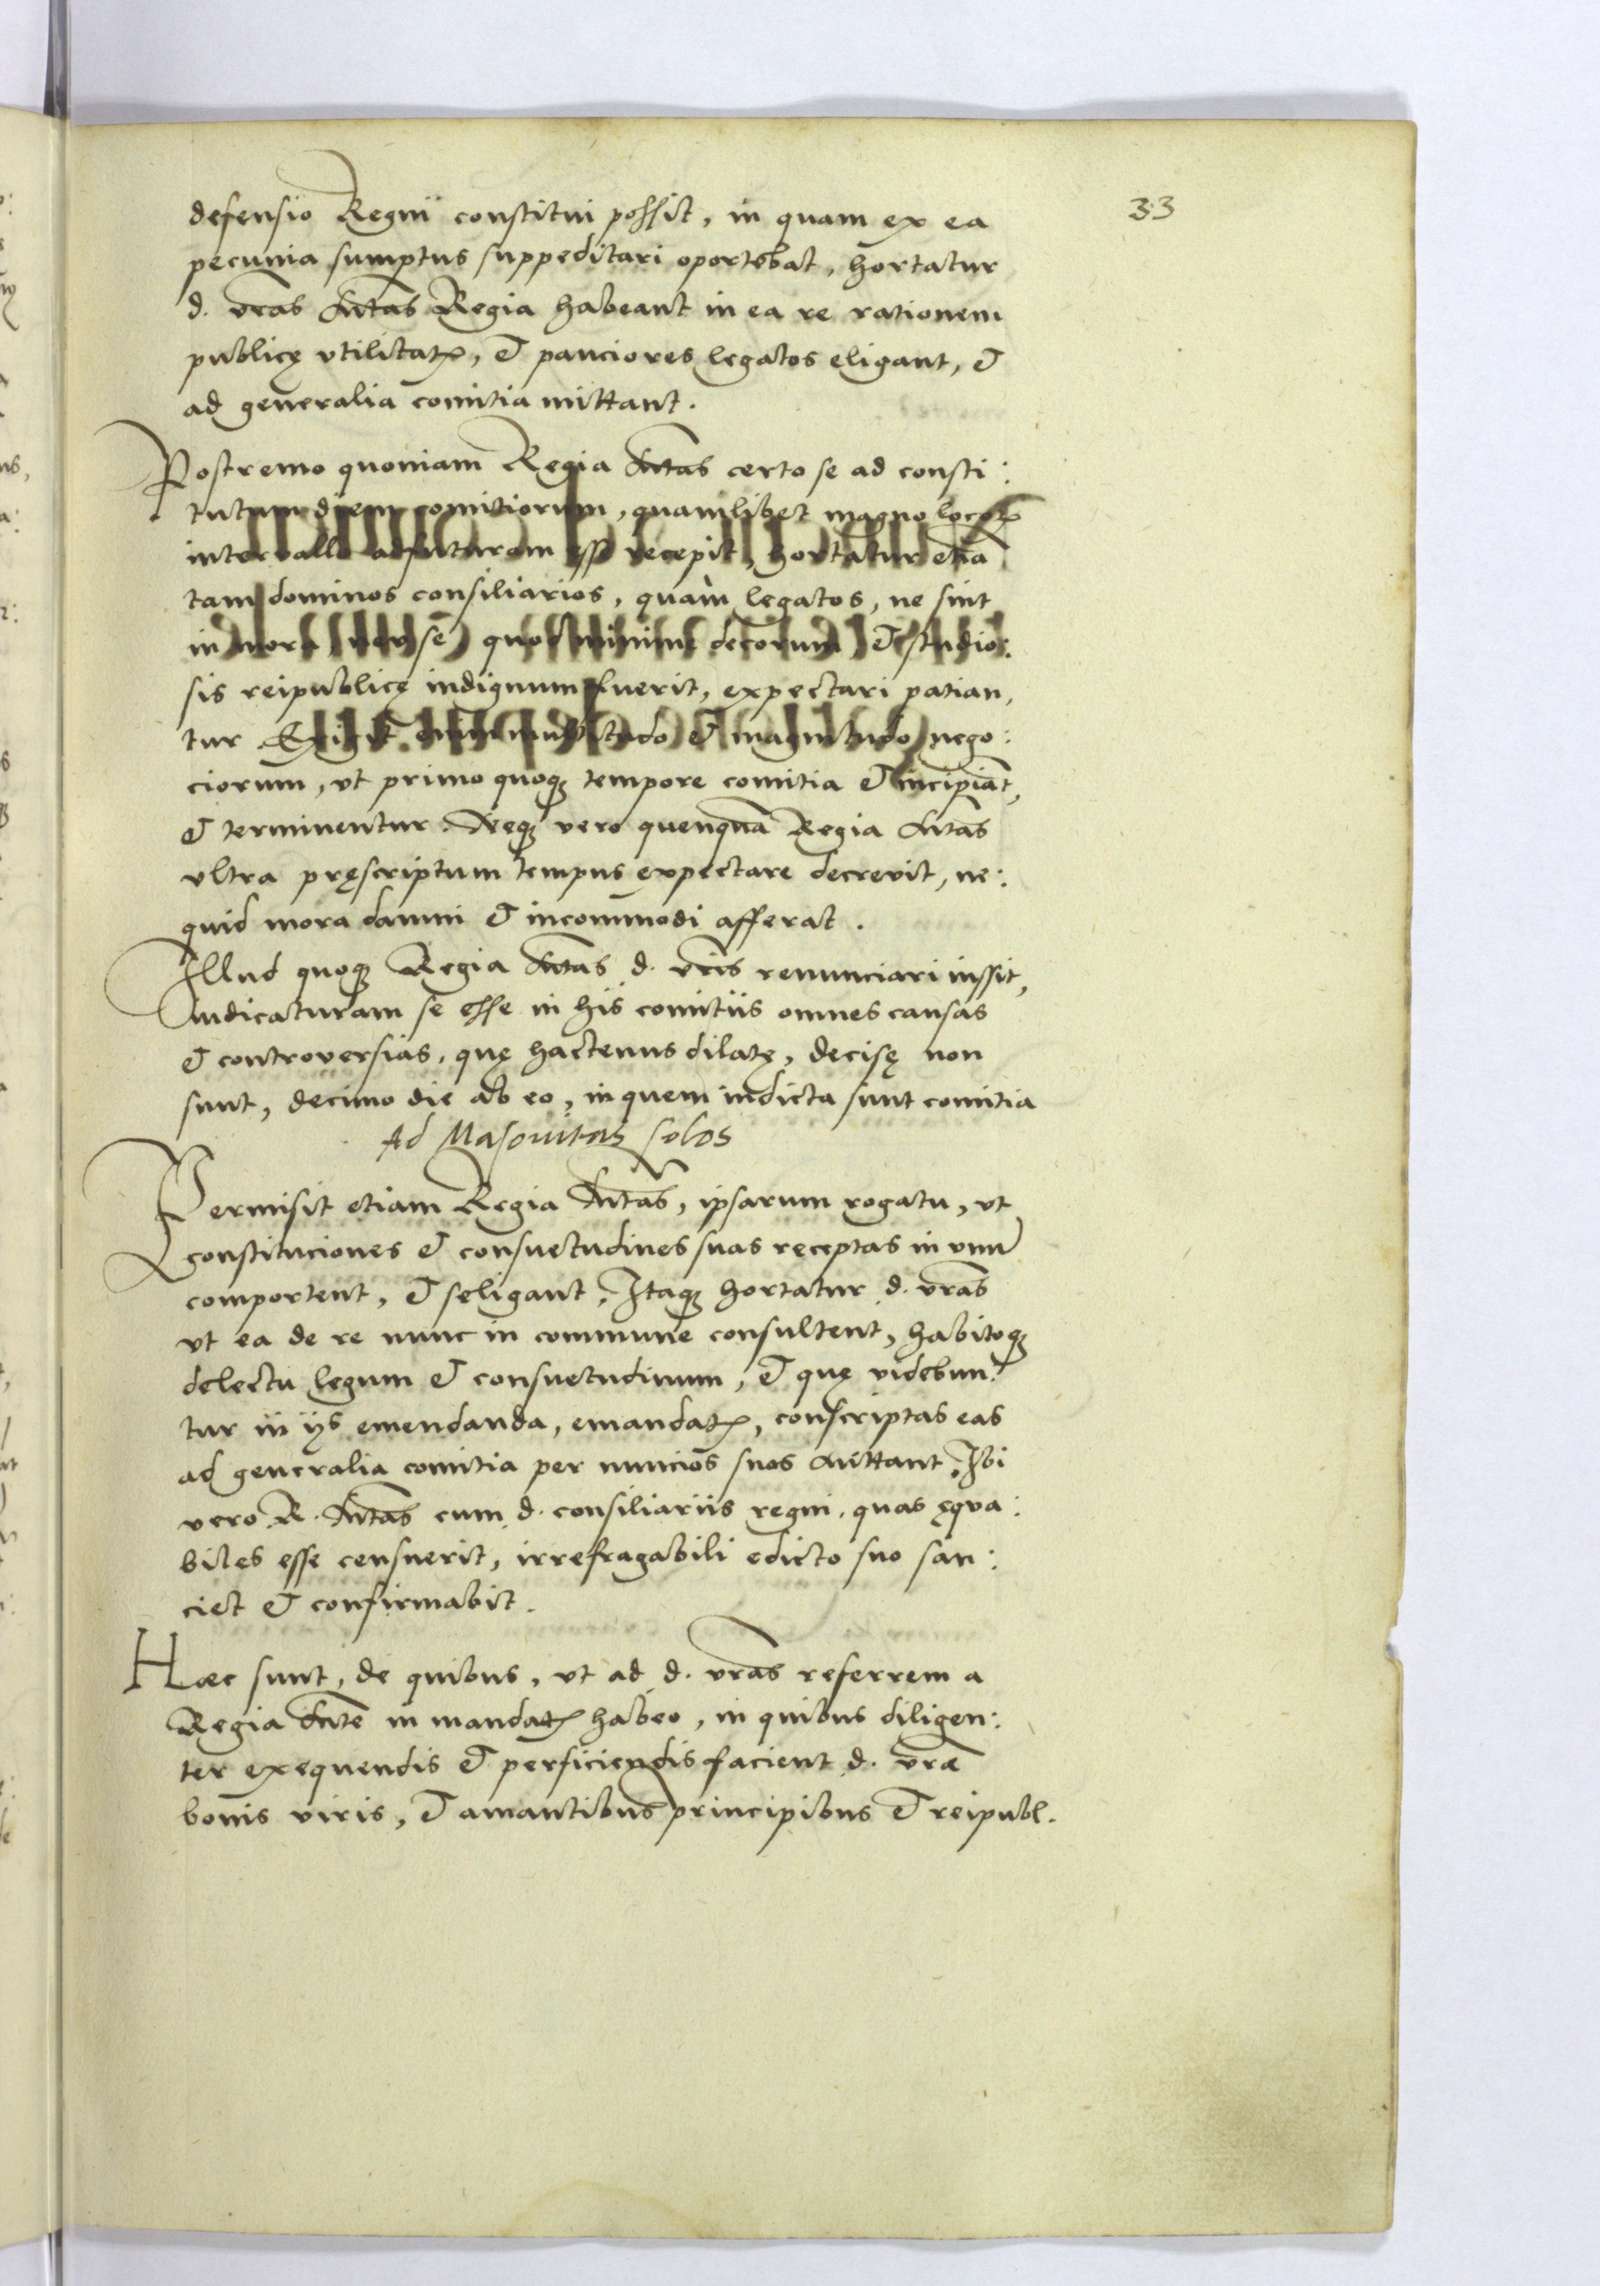 33
defensio Regni constitui possit, in quam ex ea
pecunia sumptus suppeditari oportebat, hortatur
d. vras Mtas Regia habeant in ea re rationem
publicę vtilitatꝭ, et pauciores legatos eligant, et
ad generalia comitia mittant.
Postremo quoniam Regia Mtas certo se ad consti:
tutum diem comitiorum, quamlibet magno locoꝝ
intervallo adfuturam esse recepit, hortatur etiā
tam dominos consiliarios, quàm legatos, ne sint
in mora neve se, quod minime decorum et studio:
sis reipublicę indignum fuerit, expectari patian,
tur. Exigit enim multitudo et magnitudo nego:
ciorum, vt primo quoqꝫ tempore comitia et incipiāt,
et terminentur. Neqꝫ vero quenquā Regia Mtas
vltra pręscriptum tempus expectare decrevit, ne:
quid mora damni et incommodi afferat.
Illud quoqꝫ Regia Mtas d. vris renunciari iussit,
iudicaturam se esse in his comitiis omnes causas
et controversias, quę hactenus dilatę, decisę non
sunt, decimo die ab eo, in quem indicta sunt comitia
Ad Masovitas solos
Permisit etiam Regia Mtas, ipsarum rogatu, vt
constituciones et consuetudines suas receptas in vnū
comportent, et seligant. Itaqꝫ hortatur d. vras
vt ea de re nunc in commune consultent, habitoqꝫ
delectu legum et consuetudinum, et quę videbun:
tur in ijs emendanda, emandatꝭ, conscriptas eas
ad generalia comitia per nuncios suos mittant. Ibi
vero R. Mtas cum d. consiliariis regni, quas ęqua:
biles esse censuerit, irrefragabili edicto suo san:
ciet et confirmabit.
Haec sunt, de quibus, vt ad d. vras referrem a
Regia Mte in mandatꝭ habeo, in quibus diligen:
ter exequendis et perficiendis facient d. vrae
bonis viris, et amantibus principibus et reipubl.